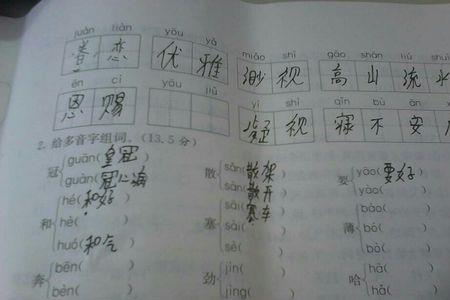 juàn liàn yōu yǎ miǎo shì gāo shān liú shuǐ
眷恋 优雅 渺视 高山流水
ēn cì yōu jiǔ yí shì qǐn bù ān
恩赐 疑视 寝不安
2. 给多音字组词。(13.5分)
冠 guān(皇冠) 散 sǎn(散架) 要 yào(要好)
guàn(冠心病) sàn(散开) yāo(
和 hé(和好) 塞 sài(塞车) 薄 báo(
hè( ) sāi( ) bó(
huó(和气) sè( ) bò(
奔 bēn( ) 劲 jìn( ) 哈 hā(
bèn( ) jìng( ) hǎ(